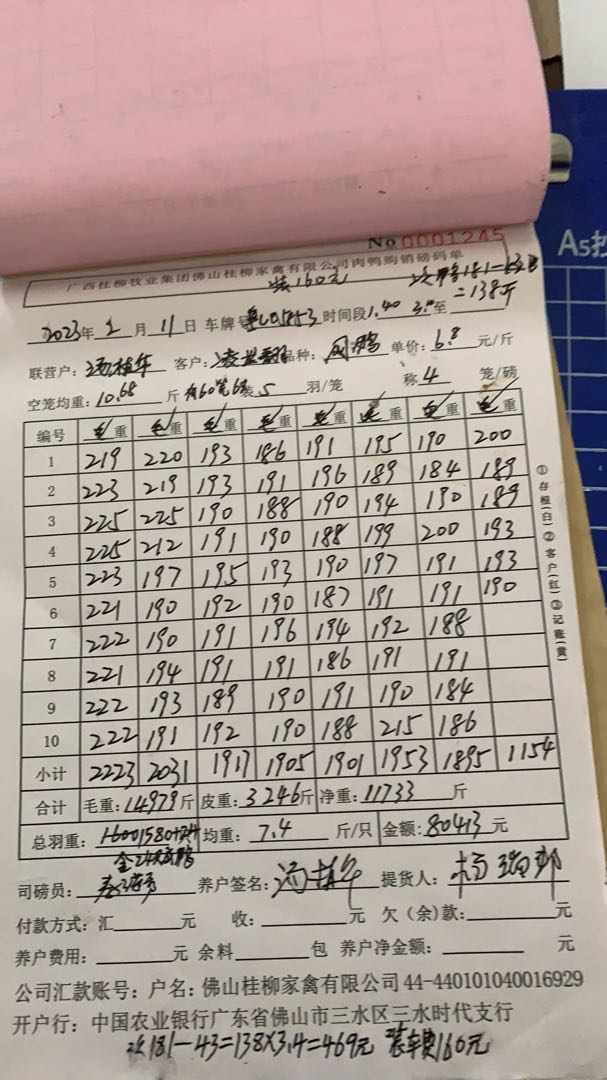 No 0001245
广西桂柳牧业集团佛山桂柳家禽有限公司肉鸭购销磅码单
装160元
=138斤
2023年 2 月 11 日 车牌号 时间段 1.40 3.00 至
联营户: 客户: 品种: 单价: 6.8 元/斤
空笼均重: 10.68 斤 有60笼6只 装 5 羽/笼 称 4 笼/磅
编号 毛重 毛重 毛重 毛重 毛重 毛重 毛重 毛重
1 219 220 193 186 191 195 190 200
2 223 219 193 191 196 189 184 189
3 225 225 190 188 190 194 190 189
4 225 212 191 190 188 199 200 193
5 223 197 195 193 190 197 191 193
6 221 190 192 190 187 191 191 190
7 222 190 191 196 194 192 188
8 221 194 191 191 186 191 191
9 222 193 189 190 191 190 184
10 222 191 192 190 188 215 186
小计 2223 2031 1917 1905 1901 1953 1895 1154
合计 毛重: 14979 斤 皮重: 3246 斤 净重: 11733 斤
总羽重: 均重: 7.4 斤/只 金额: 80413 元
司磅员: 养户签名: 提货人:
付款方式: 汇 元 收: 元 欠(余)款: 元
养户费用: 元 余料 包 养户净金额: 元
公司汇款账号: 户名: 佛山桂柳家禽有限公司 44-440101040016929
开户行: 中国农业银行广东省佛山市三水区三水时代支行
次181-43=138×3.4=469元 装车费160元
①存根(白)②客户(红)③记账(黄)
A5